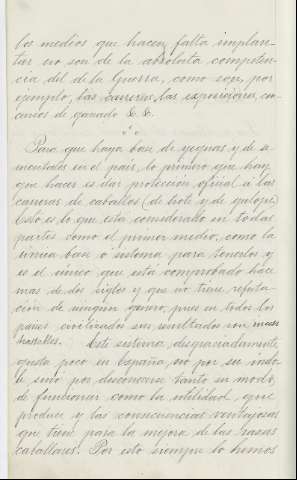 los medios que hacen falta implan-
tar no son de la absoluta competen-
cia del de la Guerra, como son, por
ejemplo, las carreras, las exposiciones, con-
cursos de ganado &. &.
Para que haya base de yeguas y de se-
mentales en el país, lo primero que hay
que hacer es dar protección oficial á las
carreras de caballos (de trote y de galope)
Esto es lo que está considerado en todas
partes como el primer medio, como la
única base ó sistema para tenerlos y
es el único que está comprobado hace
mas de dos siglos y que no tiene refuta-
ción de ningun género, pues en todos los
paises civilizados sus resultados son
Este sistema, desgraciadamente
gusta poco en España, no por su indo-
le sino por desconocerse tanto su modo
de funcionar como la utilidad que
produce y las consecuencias ventajosas
que tiene para la mejora de las razas
caballares. Por esto siempre lo hemos